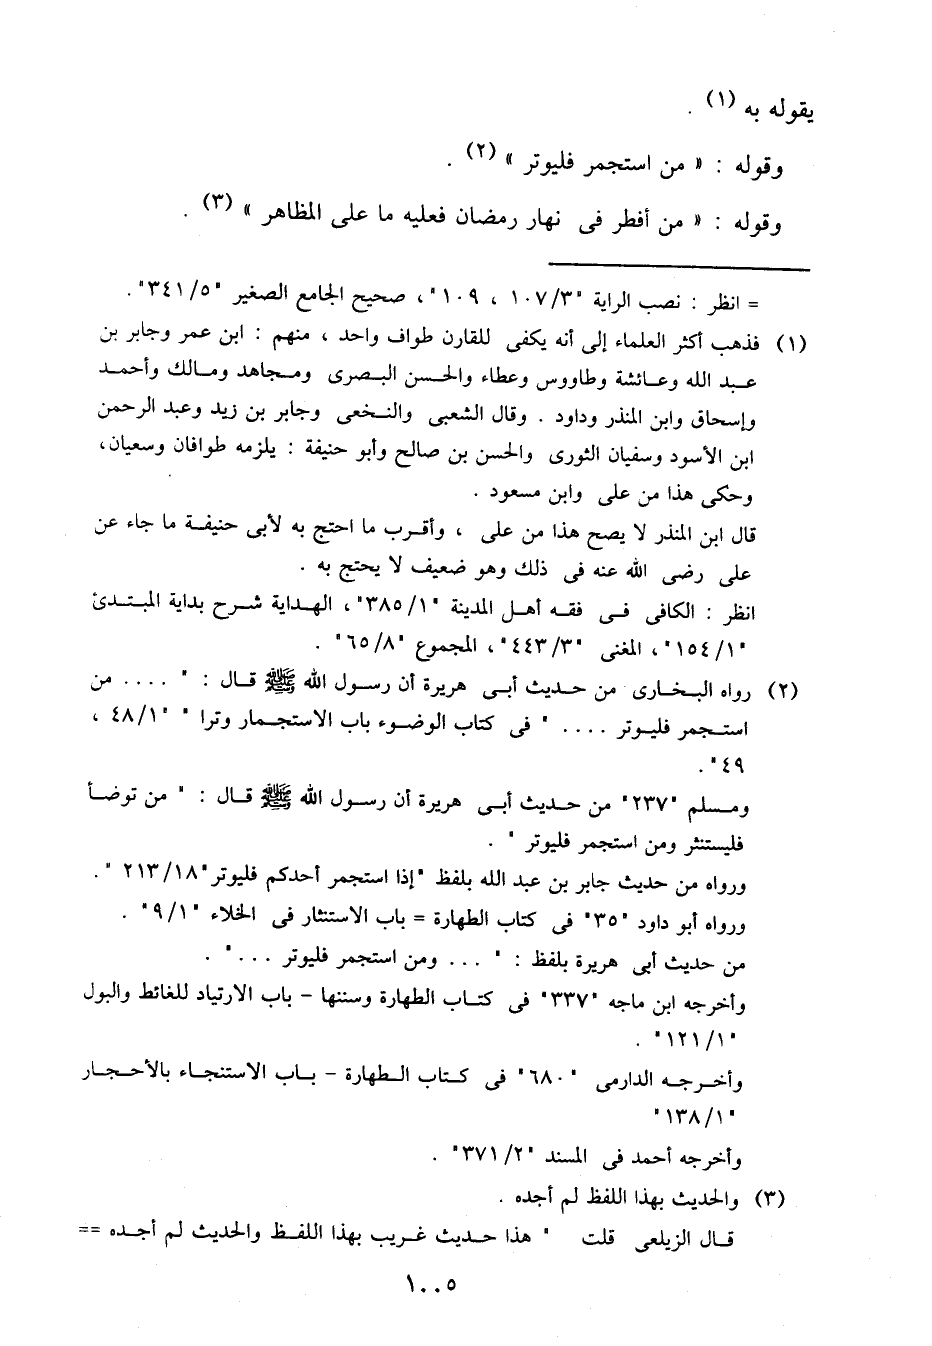 يقوله به (١) .
وقوله : « من استجمر فليوتر » (٢) .
وقوله : « من أفطر فى نهار رمضان فعليه ما على المظاهر » (٣) .
= انظر : نصب الراية "١٠٧/٣ ، ١٠٩" ، صحيح الجامع الصغير "٣٤١/٥" .
(١) فذهب أكثر العلماء إلى أنه يكفى للقارن طواف واحد ، منهم : ابن عمر وجابر بن
عبد الله وعائشة وطاووس وعطاء والحسن البصرى ومجاهد ومالك وأحمد
وإسحاق وابن المنذر وداود . وقال الشعبى والنخعى وجابر بن زيد وعبد الرحمن
ابن الأسود وسفيان الثورى والحسن بن صالح وأبو حنيفة : يلزمه طوافان وسعيان،
وحكى هذا من على وابن مسعود .
قال ابن المنذر لا يصح هذا من على ، وأقرب ما احتج به لأبى حنيفة ما جاء عن
على رضى الله عنه فى ذلك وهو ضعيف لا يحتج به .
انظر : الكافى فى فقه أهل المدينة "٣٨٥/١" ، الهداية شرح بداية المبتدئ
"١٥٤/١" ، المغنى "٤٤٣/٣" ، المجموع "٦٥/٨" .
(٢) رواه البخارى من حديث أبى هريرة أن رسول الله ﷺ قال : " .... من
استجمر فليوتر .... " فى كتاب الوضوء باب الاستجمار وترا " "٤٨/١ ،
٤٩" .
ومسلم "٢٣٧" من حديث أبى هريرة أن رسول الله ﷺ قال : " من توضأ
فليستنثر ومن استجمر فليوتر " .
ورواه من حديث جابر بن عبد الله بلفظ "إذا استجمر أحدكم فليوتر"٢١٣/١٨ " .
ورواه أبو داود "٣٥" فى كتاب الطهارة = باب الاستنثار فى الخلاء "٩/١" .
من حديث أبى هريرة بلفظ : " ... ومن استجمر فليوتر ..." .
وأخرجه ابن ماجه "٣٣٧" فى كتاب الطهارة وسننها - باب الارتياد للغائط والبول
"١٢١/١" .
وأخرجه الدارمى "٦٨٠" فى كتاب الطهارة - باب الاستنجاء بالأحجار
"١٣٨/١"
وأخرجه أحمد فى المسند "٣٧١/٢" .
(٣) والحديث بهذا اللفظ لم أجده .
قال الزيلعى قلت " هذا حديث غريب بهذا اللفظ والحديث لم أجده ==
١٠٠٥